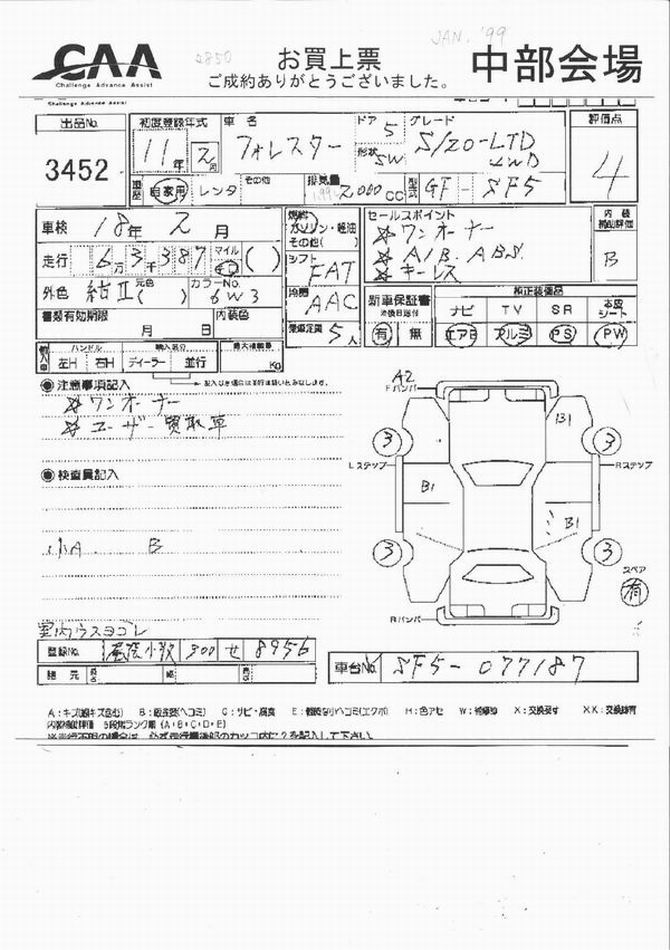 CAA
Challenge Advance Assist
2850
お買上票
ご成約ありがとうございました。
JAN. '99
中部会場
Challenge Advance Assist
出品No.
3452
初度登録年式
11年
元月
車名
フォレスター
ドア
5
形状
SW
グレード
S/20-LTD
4WD
評価点
4
自家用
レンタ
その他
排気量
2,000 CC
型式
GF-SF5
車検
18年 2月
走行
6万3千387
マイル
キロ
( )
外色
紺II
元色
( )
カラーNo.
6W3
書類有効期限
月 日
内装色
燃料
ガソリン・軽油
その他( )
シフト
FAT
冷房
AAC
乗車定員
5人
セールスポイント
☆ワンオーナー
☆A/B. ABS.
☆キーレス
内装
補助評価
B
新車保証書
有 無
純正装備品
ナビ
TV
SR
本皮
シート
エアB
アルミ
PS
PW
輸入車
ハンドル
左H 右H
輸入区分
ディーラー
並行
最大積載量
Kg
◉注意事項記入
☆ワンオーナー
☆ユーザー買取車
◉検査員記入
小A. B
室内ウスヨゴレ
A2
Fバンパ
B1
3
3
Lステップ
Rステップ
B1
B1
3
3
スペア
有
Rバンパ
登録No.
尾張小牧 300 せ 8956
諸元
長さ
幅
高さ
車台No.
SF5-077187
A:キズ(線キズ含む) B:板金(ヘコミ) C:サビ・腐食 E:軽微な小ヘコミ(エクボ) H:色アセ W:補修跡 X:交換要す XX:交換済有
内装補助評価 5段階ランク順 (A・B・C・D・E)